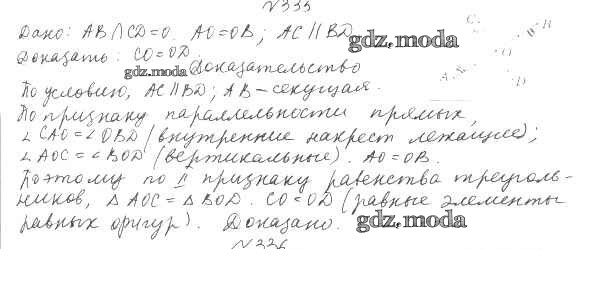 N 335
Дано: AB ∩ CD = O. AO = OB; AC || BD
gdz.moda
Доказать: CO = OD.
gdz.moda Доказательство
По условию, AC || BD; AB – секущая.
По признаку параллельности прямых,
∠ CAO = ∠ OBD (внутренние накрест лежащие);
∠ AOC = ∠ BOD (вертикальные). AO = OB.
Поэтому по II признаку равенства треуголь-
ников, △ AOC = △ BOD. CO = OD (равные элементы
равных фигур). Доказано.
gdz.moda
N 336
C
B
O
A
D